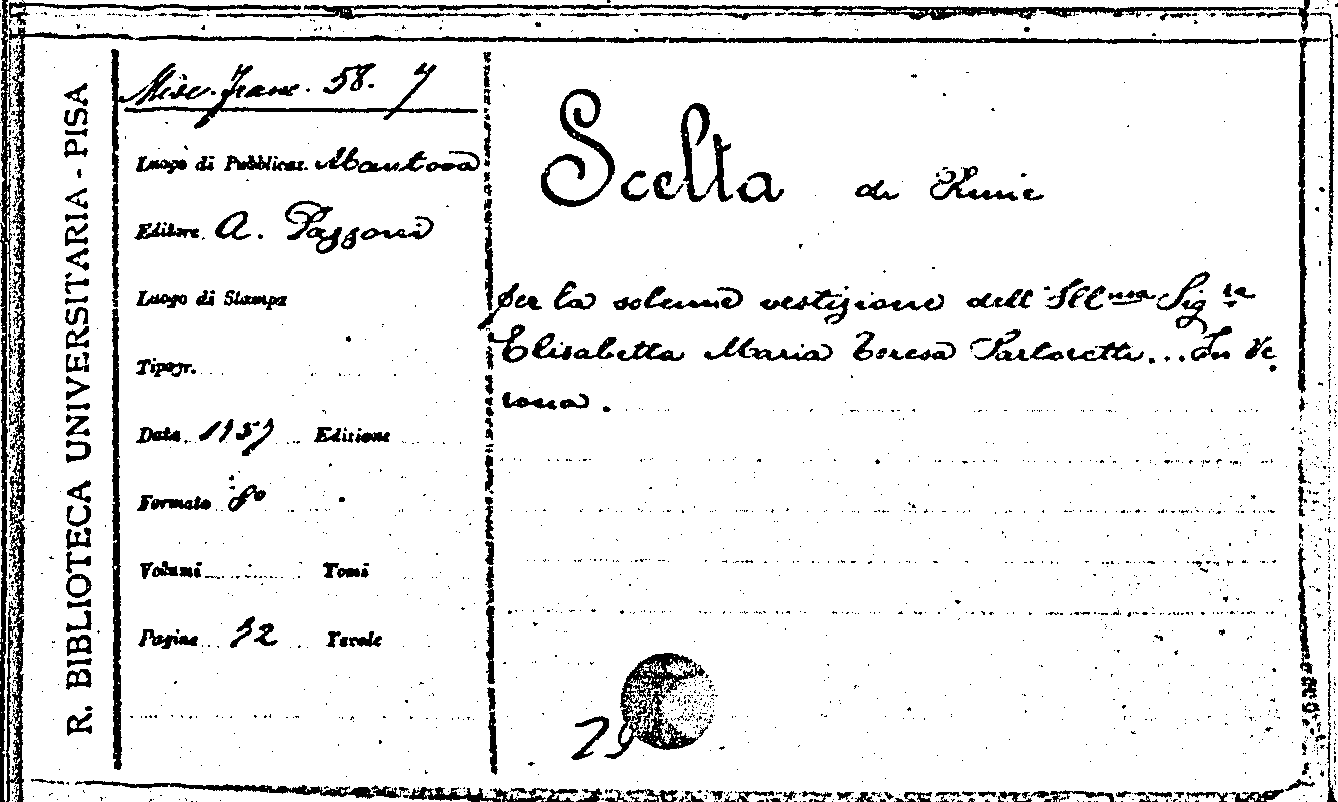 R. BIBLIOTECA UNIVERSITARIA - PISA
Misc. Franc. 58. 7
Luogo di Pubblicaz. Mantova
Editore A. Pazzoni
Luogo di Stampa
Tipogr.
Data Edizione
Formato 8º
Volumi Tomi
Pagine 32 Tavole
Scelta di Rime
per la solenne vestizione dell'Ill.ma Sig.ra
Elisabetta Maria Teresa ... In Ve
rona.
29